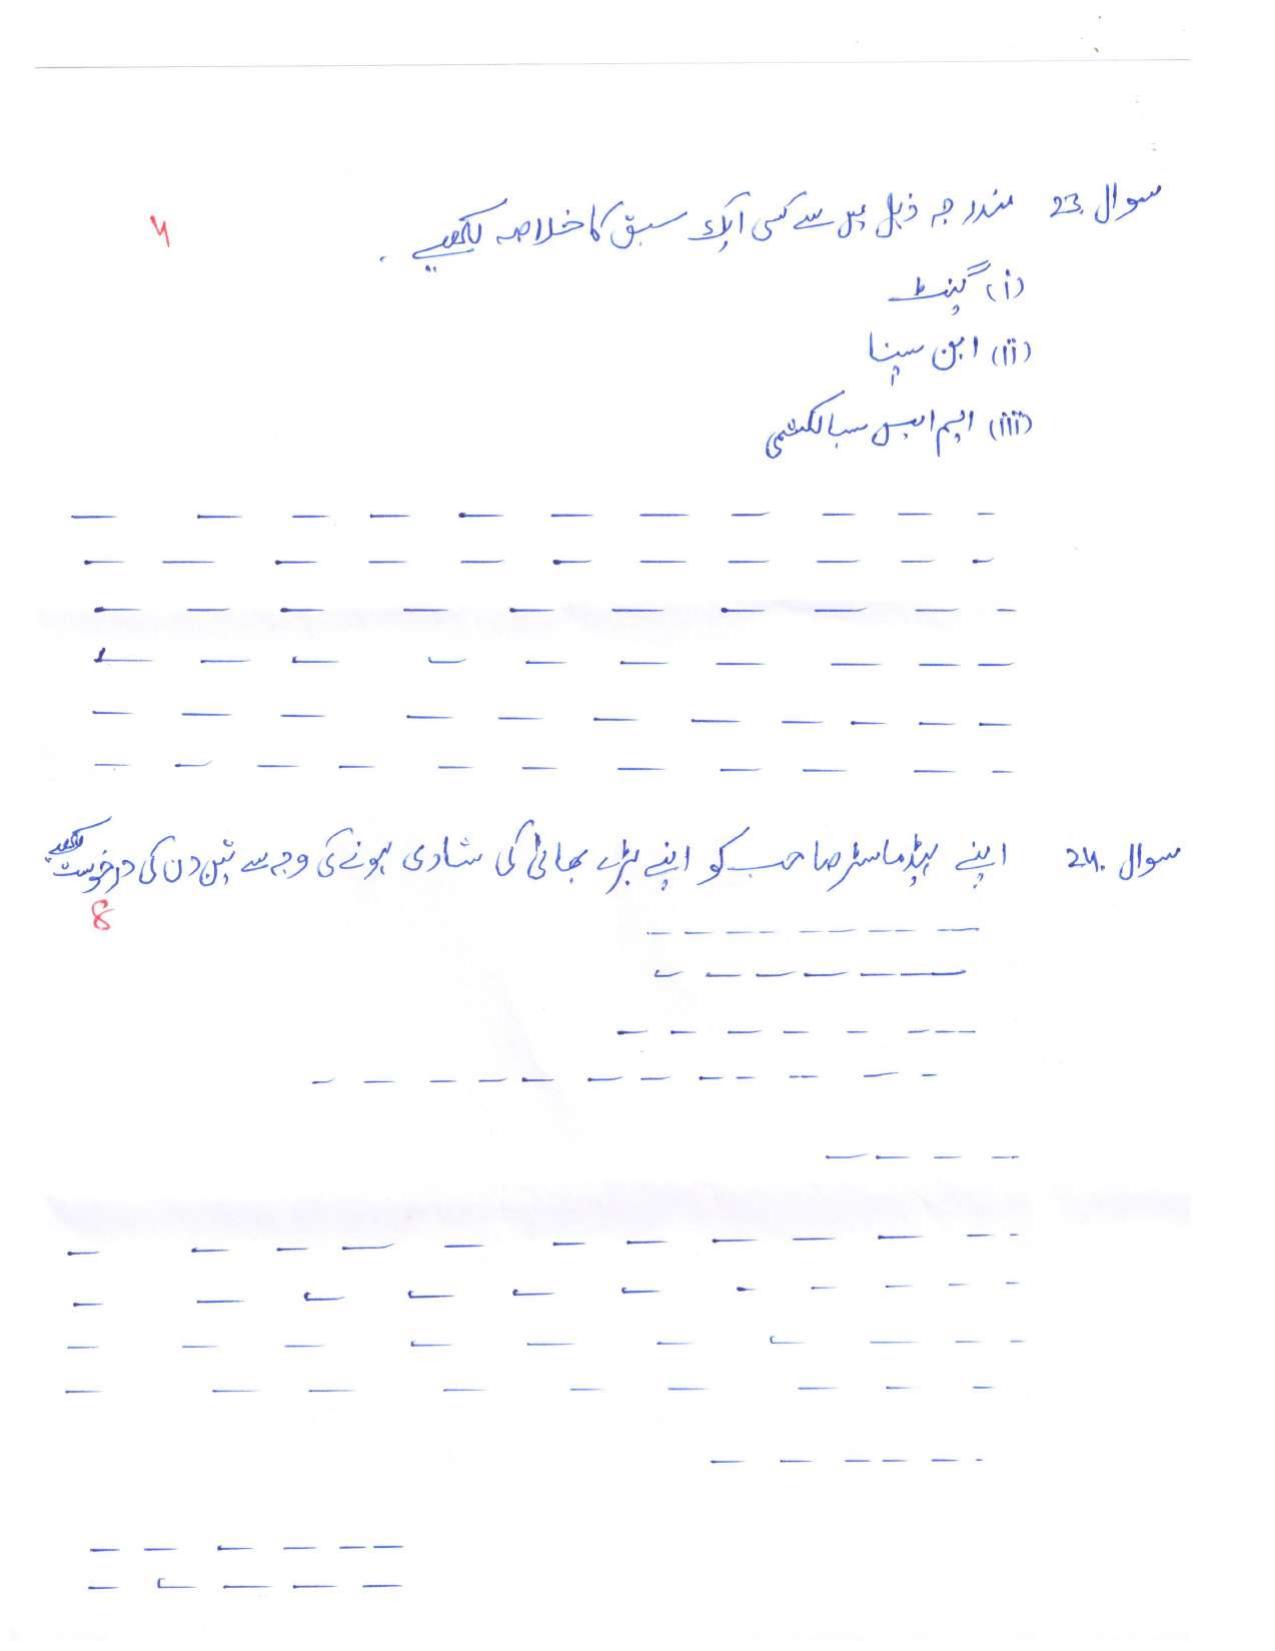 سوال 23. مندرجہ ذیل میں سے کسی ایک سبق کا خلاصہ لکھیے۔
(i) گپنٹ
(ii) ابن سینا
(iii) ایم ایس سبالکشمی
سوال 24. اپنے ہیڈماسٹر صاحب کو اپنے بڑے بھائی کی شادی ہونے کی وجہ سے تین دن کی درخوست لکھیے
8